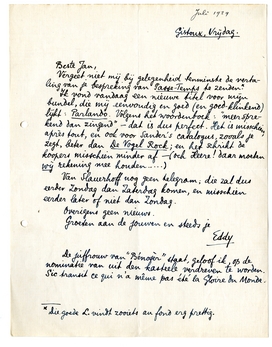 Juli 1929
Gistoux, Vrijdag.
Beste Jan,
Vergeet niet mij bij gelegenheid tenminste de verta-
ling van je bespreking van Passe-Temps te zenden.*
Ik vond vandaag een nieuwe titel voor mijn
bundel, die mij eenvoudig en goed (en goed-klinkend)
lijkt: Parlando. Volgens het woordenboek: "meer spre-
kend dan zingend" – dat is dus perfect. Het is misschien,
après tout, en ook voor Sander's catalogus, zooals je
zegt, beter dan De Vogel Rock; en het schrikt de
koopers misschien minder af – (och Heere! daar moeten
wij rekening mee houden...!)
Van Slauerhoff nog geen telegram; die zal dus
eerder Zondag dan Zaterdag komen, en misschien
eerder later of niet dan Zondag.
Overigens geen nieuws.
Groeten aan de jouwen en steeds je
Eddy
De juffrouw van geloof ik, op de
nominatie van uit den kasteele verdreven te worden.
Sic transit ce qui n'a même pas été la Gloire du Monde.
* De goede L. vindt zooiets au fond erg prettig.